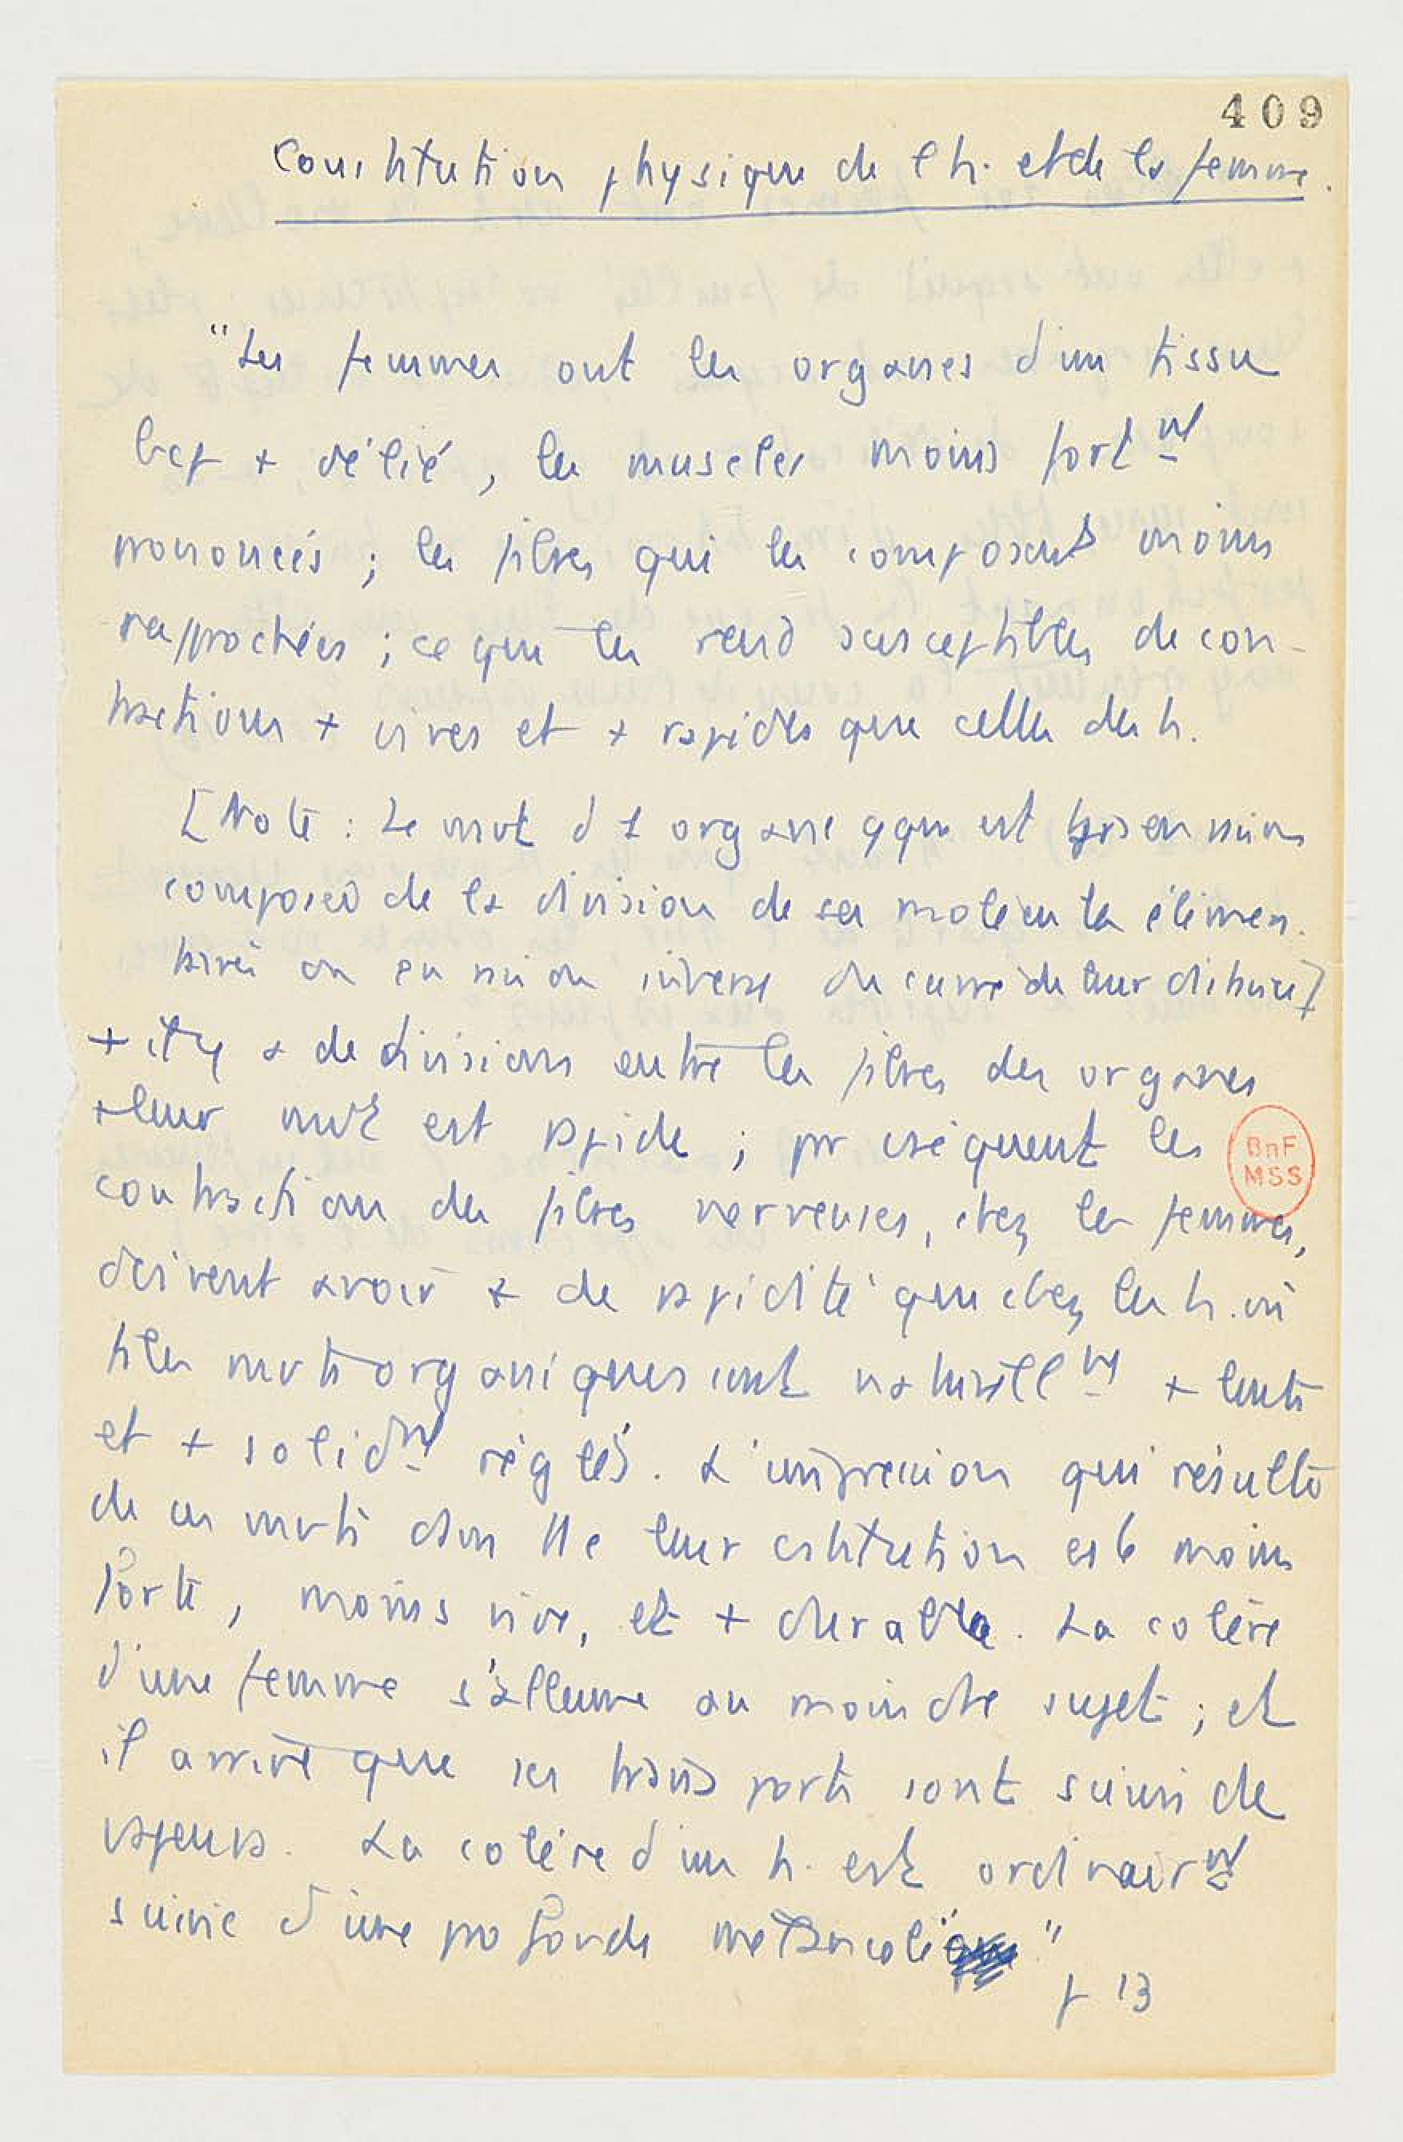 409
Constitution physique de l'h. et de la femme.
"Les femmes ont les organes d'un tissu
bcp + délié, les muscles moins fort^nt
prononcés ; les fibres qui les composent moins
rapprochées ; ce qui les rend susceptibles de con-
tractions + vives et + rapides que celles des h.
[Note : Le mvt d 1 organe qqu est tjrs en raison
composée de la division de ses molécules élémen.
taires ou en raison inverse du carré de leur distance]
+ il y a de divisions entre les fibres des organes
+ leur mvt est rapide ; par cséquent les
BnF
MSS
contractions des fibres nerveuses, chez les femmes,
doivent avoir + de rapidité que chez les h. où
ts les mvts organiques sont naturell^nt + lents
et + solid^nt réglés. L'impression qui résulte
de ces mvts dans tte leur cstitution est moins
forte, moins vive, et + durable. La colère
d'une femme s'allume au moindre sujet ; et
il arrive que ses transports sont suivis de
vapeurs. La colère d'un h. est ordinair^nt
suivie d'une profonde mélancolie"
p 13